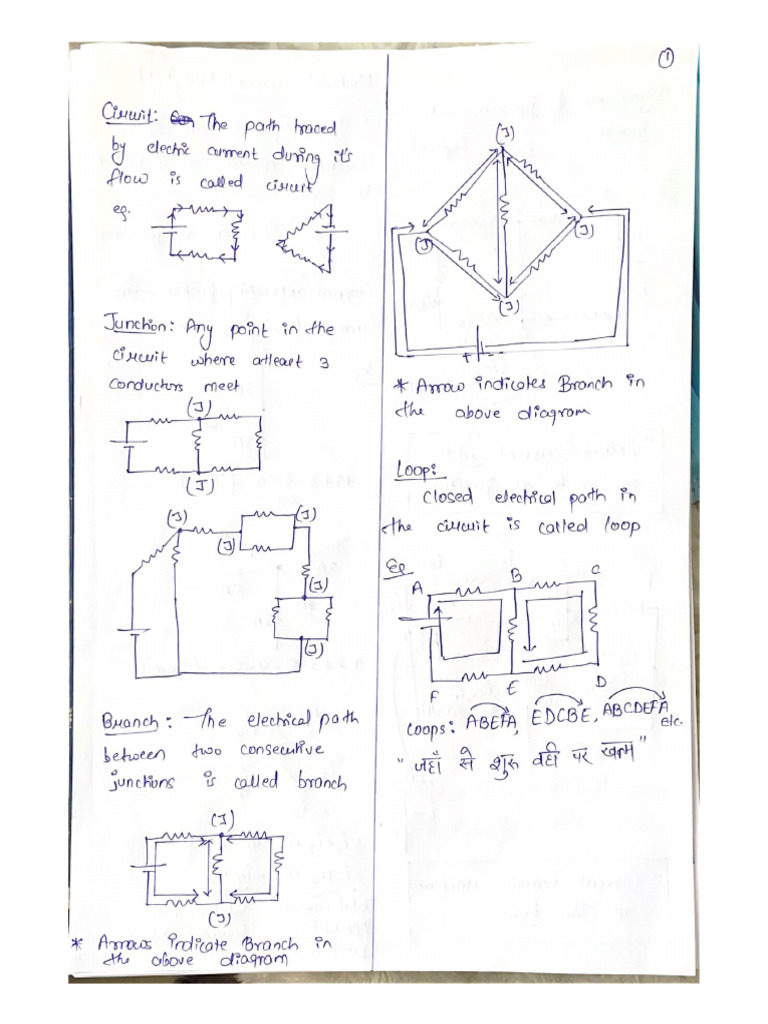 ①
Circuit: The path traced
by electric current during it's
flow is called circuit
eg.
Junction: Any point in the
circuit where atleast 3
conductors meet
(J)
(J)
(J)
(J)
(J)
(J)
(J)
Branch: The electrical path
between two consecutive
junctions is called branch
(J)
(J)
* Arrows indicate Branch in
the above diagram
(J)
(J)
(J)
(J)
+ -
* Arrow indicates Branch in
the above diagram
Loop:
Closed electrical path in
the circuit is called loop
Eg
A B C
F E D
Loops: ABEFA, EDCBE, ABCDEFA
etc.
"जहाँ से शुरू वहीं पर खत्म"